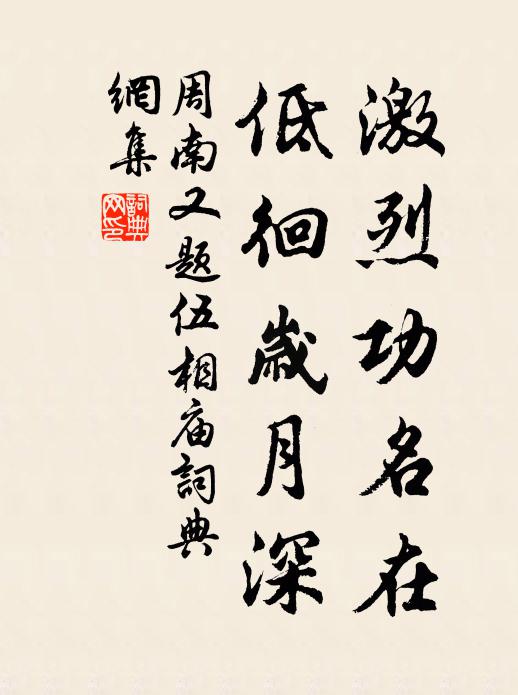 激烈功名在
低徊歲月深
周南又題伍相庙詞典
網集
詞典
网印